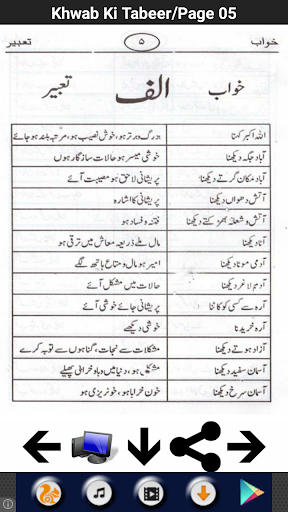 Khwab Ki Tabeer/Page 05
خواب ۵ تعبیر
خواب الف تعبیر
اللہ اکبر کہنا بزرگ و برتر ہو، خوش نصیب ہو، مرتبہ بلند ہو جائے
آباد جگہ دیکھنا خوشی میسر ہو حالات سازگار ہوں
آباد مکان گرتے دیکھنا پریشانی لاحق ہو مصیبت آئے
آتش دھواں دیکھنا پریشانی کا اشارہ
آتش و شعلہ بھڑکتے دیکھنا فتنہ و فساد ہو
آٹا دیکھنا مال ملے ذریعہ معاش میں ترقی ہو
آدمی موٹا دیکھنا امیر ہو مال و متاع ہاتھ لگے
آدم لاغر دیکھنا حالات میں مشکل آئے
آرہ سے کسی کو کاٹنا پریشانی جائے خوشی آئے
آرہ خریدنا خوشی دیکھے
آزاد ہوتے دیکھنا مشکلات سے نجات، گناہوں سے توبہ کرے
آسمان سفید دیکھنا مشکل ہو، دنیا میں وباء خرابی پھیلے
آسمان سرخ دیکھنا خون خرابا ہو، خونریزی ہو